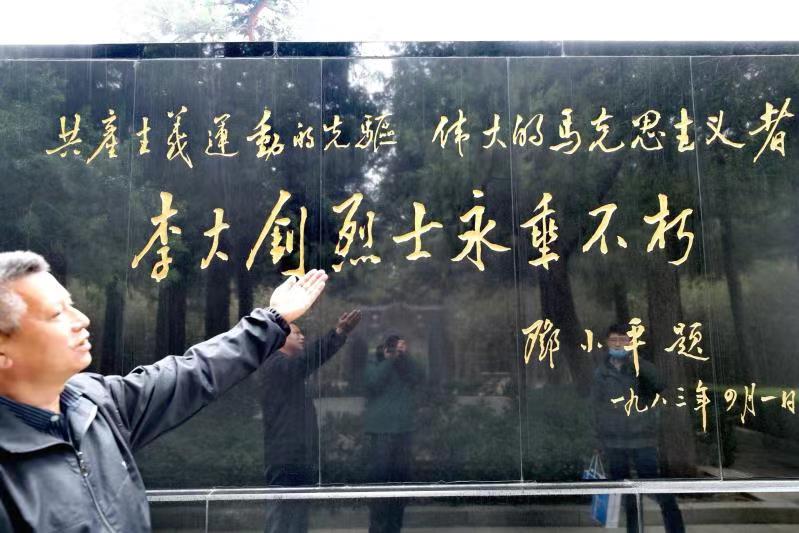 共產主義運動的先驅 伟大的馬克思主义者
李大釗烈士永垂不朽
鄧小平題
一九八三年四月一日